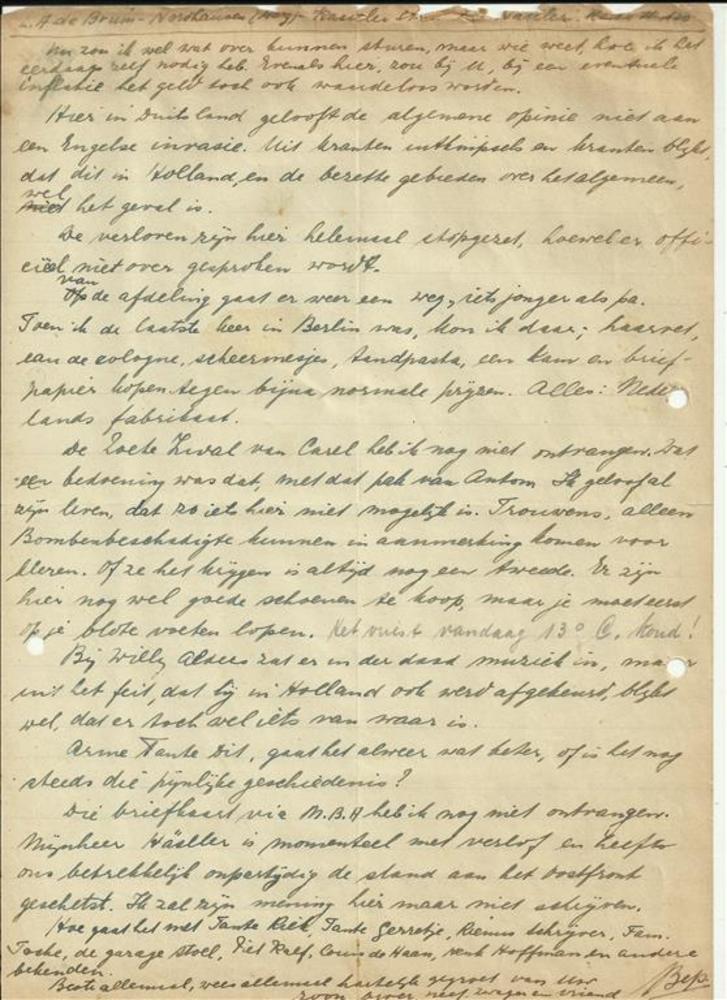 A de Bruin - Nordhausen (Harz) - Kasseler
Nu zou ik wel wat over kunnen sturen, maar wie weet, hoe ik het
eerdaags zelf nodig heb. Evenals hier, zou bij U, bij een eventuele
inflatie het geld toch ook waardeloos worden.
Hier in Duitsland gelooft de algemene opinie niet aan
een Engelse invasie. Uit kranten uitknipsels en kranten blijkt,
dat dit in Holland, en de bezette gebieden over het algemeen,
wel
niet het geval is.
De verloren zijn hier helemaal stopgezet, hoewel er offi-
ciëel niet over gesproken wordt.
van
Op de afdeling gaat er weer een weg, iets jonger als pa.
Toen ik de laatste keer in Berlin was, kon ik daar; haarvet,
eau de cologne, scheermesjes, tandpasta, een kam en brief-
papier kopen tegen bijna normale prijzen. Alles: Neder
lands fabrikaat.
De Zoete Inval van Carel heb ik nog niet ontvangen. Wat
een bedoening was dat, met dat pak van Antom Ik geloof al
zijn leven, dat zo iets hier niet mogelijk is. Trouwens, alleen
Bombenbeschädigte kunnen in aanmerking komen voor
kleren. Of ze het krijgen is altijd nog een tweede. Er zijn
hier nog wel goede schoenen te koop, maar je moet eerst
op je blote voeten lopen. Het vriest vandaag 13° C. Koud!
Bij Willy Alders zat er inderdaad muziek in, maar
uit het feit, dat hij in Holland ook werd afgekeurd, blijkt
wel, dat er toch wel iets van waar is.
Arme Tante Dit, gaat het alweer wat beter, of is het nog
steeds die pijnlijke geschiedenis?
Die briefkaart via M.B.A heb ik nog niet ontvangen.
Mijnheer Hässler is momenteel met verlof en heeft
ons betrekkelijk onpartijdig de stand aan het Oostfront
geschetst. Ik zal zijn mening hier maar niet schrijven.
Hoe gaat het met Tante Riek, Tante Gerretje, Rienus Schrijver, Fam.
Toske, de garage Stoel, Piet Ralf, Louis de Haan, Henk Hoffman en andere
bekenden.
Beste allemaal, wees allemaal hartelijk gegroet van Uw
zoon, broer, neef, zwager en vriend Bep